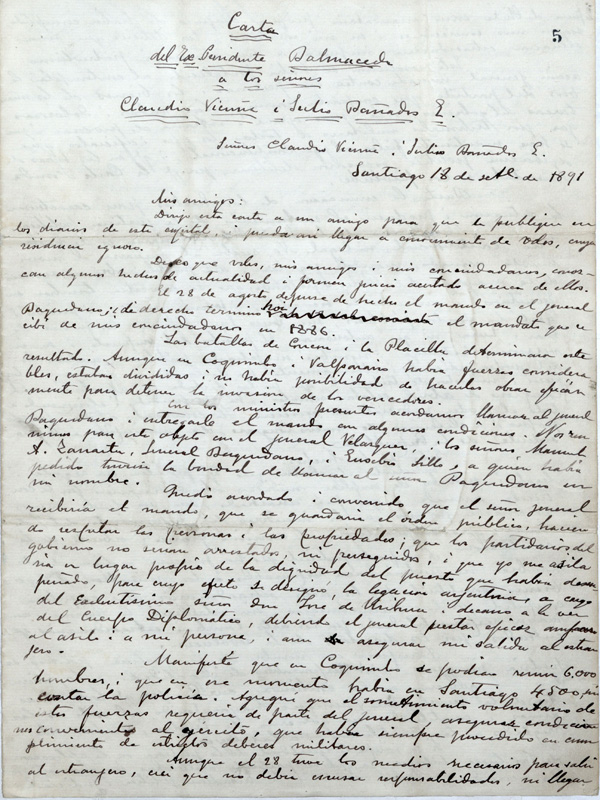 5
Carta
del Ex Presidente Balmaceda
a los señores
Claudio Vicuña i Julio Bañados E.
Señores Claudio Vicuña i Julio Bañados E.
Santiago 18 de set. de 1891
Mis amigos:
Dirijo esta carta a un amigo para que la publique en
los diarios de esta capital, i pueda así llegar a conocimiento de Vdes, cuya
residencia ignoro.
Deseo que Vdes, mis amigos i mis conciudadanos, conoz-
can algunos hechos de actualidad i formen juicio acertado acerca de ellos.
El 28 de agosto depuse de hecho el mando en el jeneral
Baquedano, i de derecho termina hoi el mandato que re-
cibí de mis conciudadanos en 1886.
Las batallas de Concon i la Placilla determinaron este
resultado. Aunque en Coquimbo i Valparaiso habia fuerzas considera-
bles, estaban divididas i no habia posibilidad de hacerlas obrar eficaz-
mente para detener la invasion de los vencedores.
Con los ministros presentes acordamos llamar al jeneral
Baquedano i entregarle el mando con algunas condiciones. Nos reu-
nimos para este objeto con el jeneral Velasquez, i los señores Manuel
A. Zañartu, Jeneral Baquedano, i Eusebio Lillo, a quien habia
pedido tuviera la bondad de llamar al señor Baquedano en
mi nombre.
Quedó acordado i convenido que el señor jeneral
recibiria el mando, que se guardaria el órden público, hacien-
do respetar las personas i las propiedades; que los partidarios del
gobierno no serian arrestados, ni perseguidos, i que yo me asila-
ria en lugar propio de la dignidad del puesto que habia desem-
peñado, para cuyo efecto se designó la legacion arjentina, a cargo
del Excelentísimo señor don José de Uriburu i decano a la vez
del Cuerpo Diplomático, debiendo el jeneral prestar eficaz amparo
al asilo i a mi persona, i aun asegurar mi salida al estran-
jero.
Manifesté que en Coquimbo se podian reunir 6,000
hombres, i que en ese momento habia en Santiago 4500, sin
contar la policía. Agregué que el sometimiento voluntario de
estas fuerzas requeria de parte del jeneral, asegurar condicio-
nes convenientes al ejército, que habia siempre procedido en cum-
plimiento de estrictos deberes militares.
Aunque el 28 tuve los medios necesarios para salir
al estranjero, creí que no debia escusar responsabilidades, ni llegar